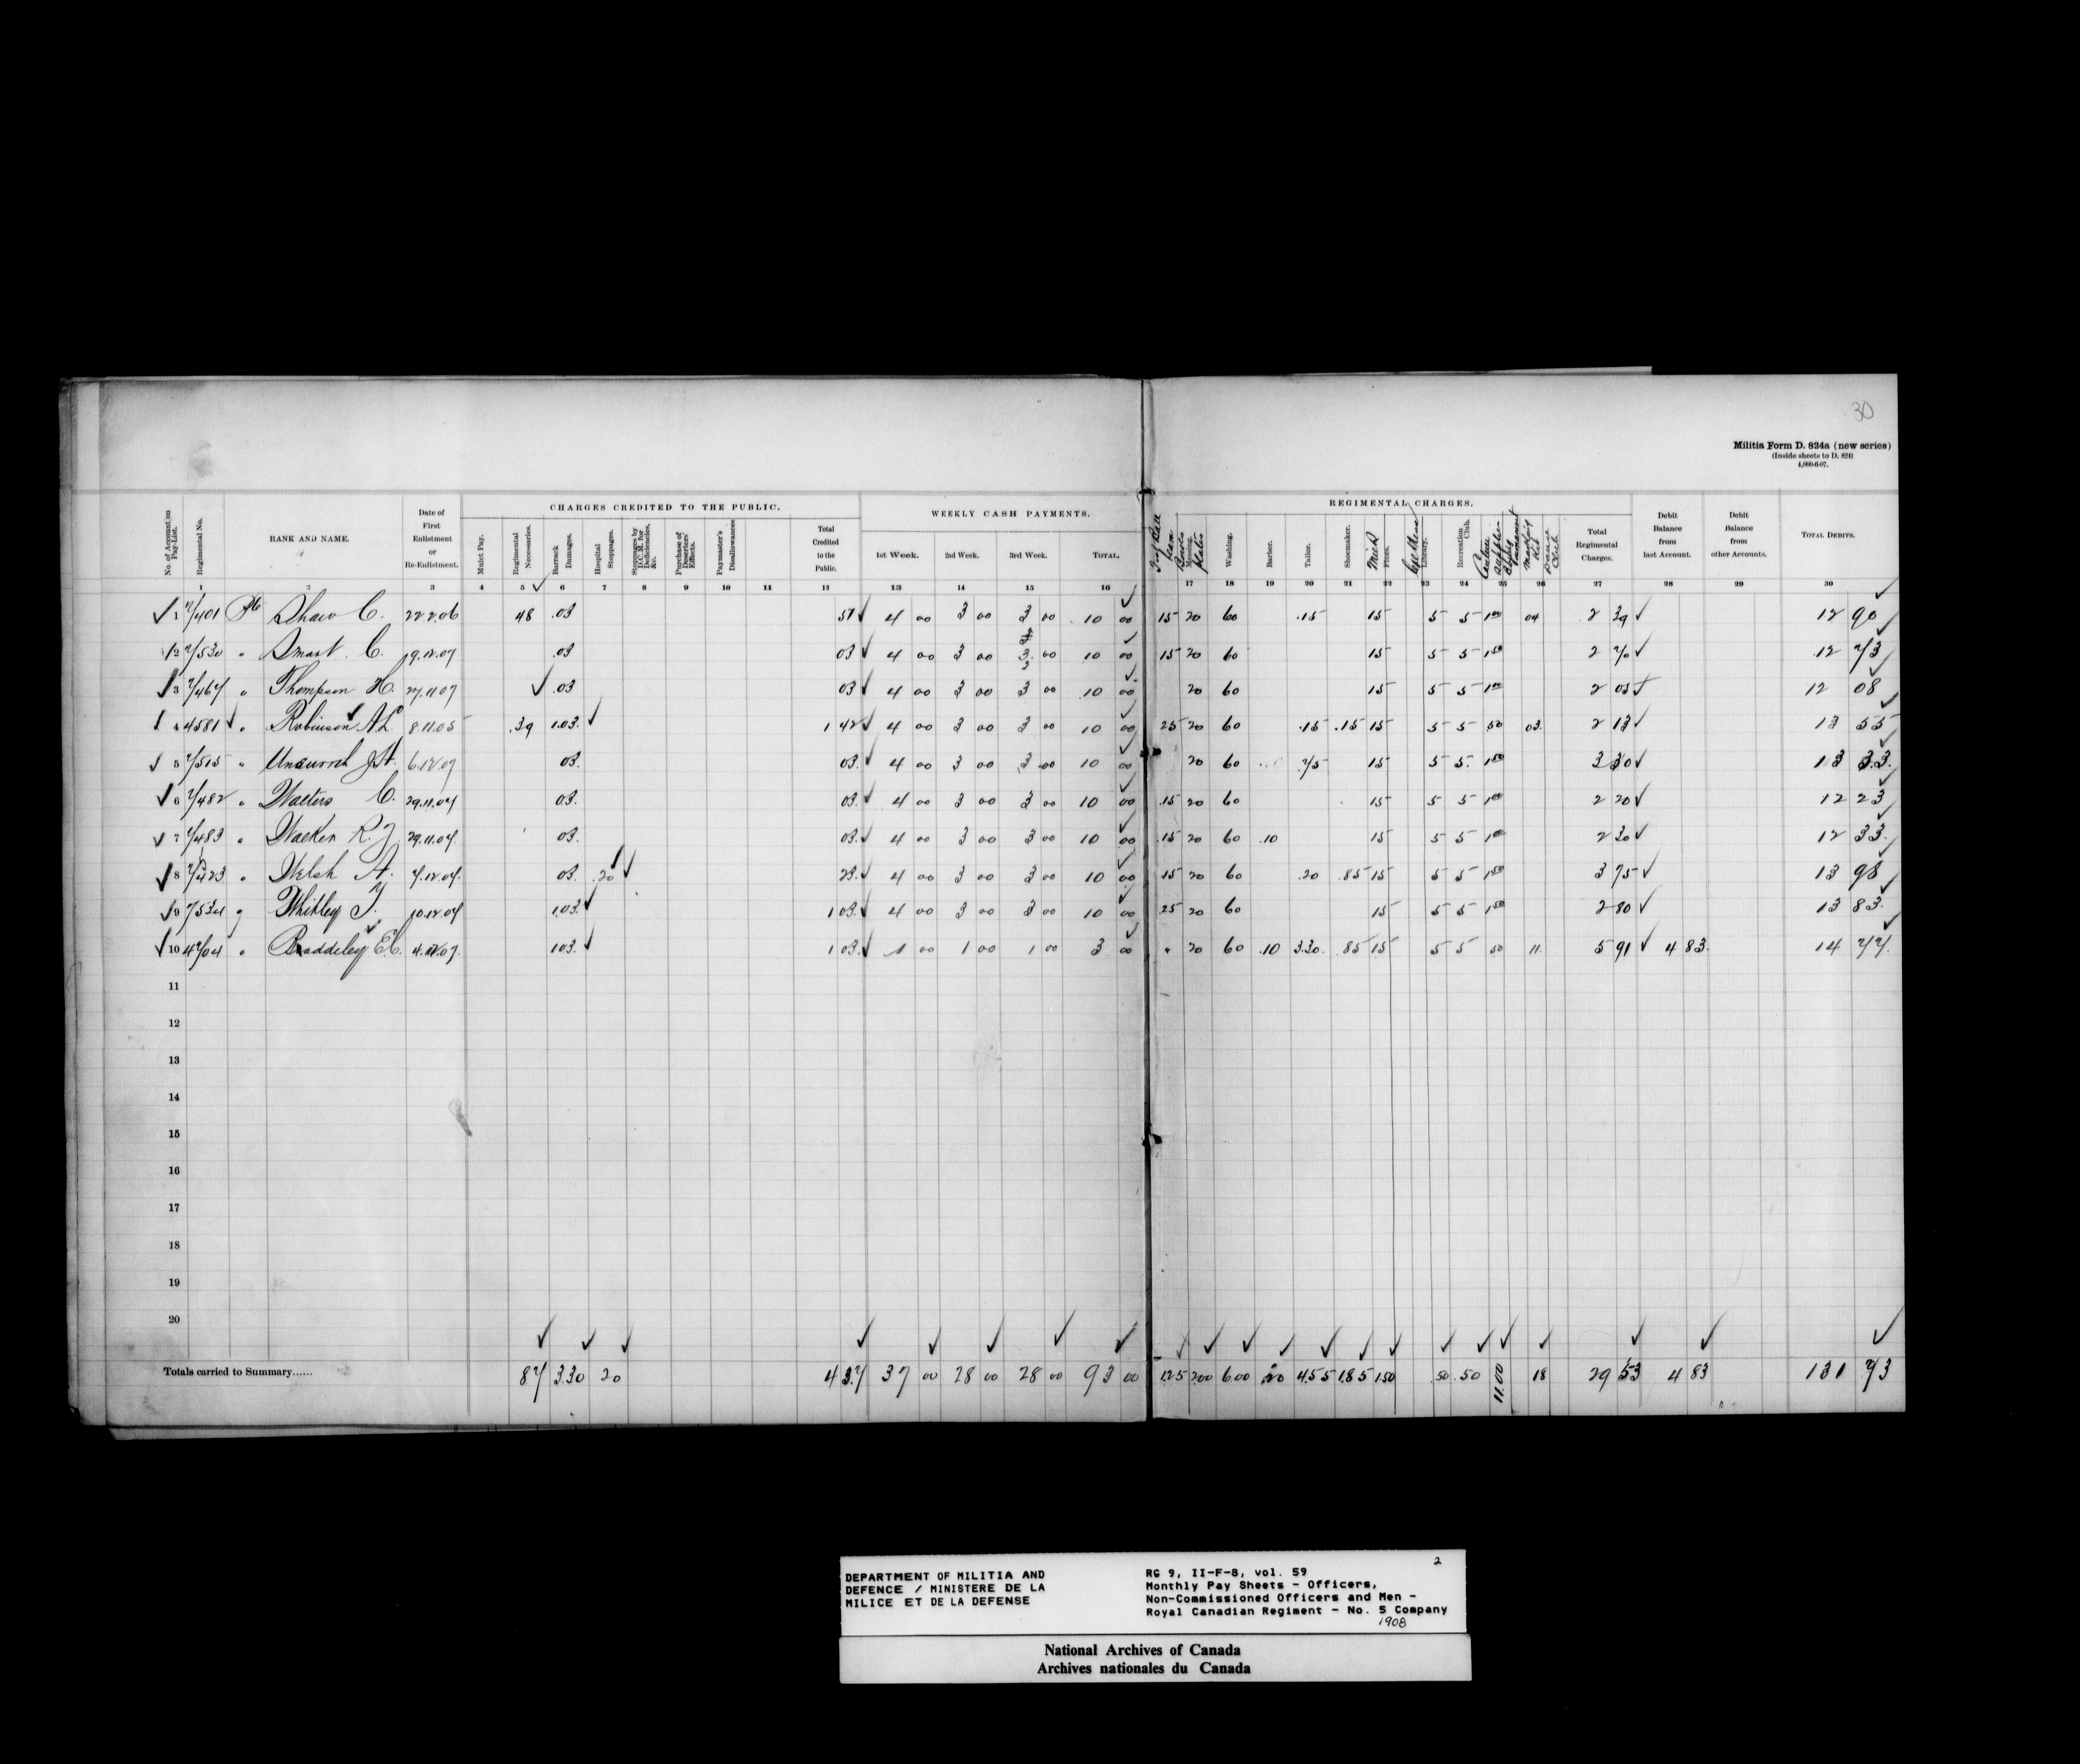 30
Militia Form D. 824a (new series)
(Inside sheets to D. 824)
4,000-6-07.
No. of Account on Pay-List.
Regimental No.
RANK AND NAME.
Date of First Enlistment or Re-Enlistment.
CHARGES CREDITED TO THE PUBLIC.
Mulct Pay.
Regimental Necessaries.
Barrack Damages.
Hospital Stoppages.
Stoppages by D.C.M. for Deficiencies, &c.
Purchase of Deserters' Effects.
Paymaster's Disallowances
Total Credited to the Public.
WEEKLY CASH PAYMENTS.
1st Week.
2nd Week.
3rd Week.
TOTAL.
REGIMENTAL CHARGES.
Messing.
Washing.
Barber.
Tailor.
Shoemaker.
Fines.
Library.
Recreation Club.
Total Regimental Charges.
Debit Balance from last Account.
Debit Balance from other Accounts.
TOTAL DEBITS.
1 2 3 4 5 6 7 8 9 10 11 12 13 14 15 16 17 18 19 20 21 22 23 24 25 26 27 28 29 30
1 7401 Pte Shaw C. 22.2.06 48 .03 51 4 00 3 00 3 00 10 00 15 20 60 .15 15 5 5 1 00 04 2 39 12 90
2 7530 " Smart C. 9.12.07 .03 03 4 00 3 00 3 00 10 00 15 20 60 15 5 5 1 50 2 70 12 73
3 7467 " Thompson H. 27.11.07 .03 03 4 00 3 00 3 00 10 00 20 60 15 5 5 1 00 2 05 12 08
4 4581 " Robinson A.L. 8.11.05 .39 1.03. 1 42 4 00 3 00 3 00 10 00 25 20 60 .15 .15 15 5 5 50 03. 2 13 13 55
5 7515 " J.H. 6.12.07 03. 03. 4 00 3 00 3 00 10 00 20 60 .75 15 5 5. 1 50 3 30 13 33.
6 7482 " Walters C. 29.11.07 03. 03. 4 00 3 00 3 00 10 00 .15 20 60 15 5 5 1 00 2 20 12 23
7 7483 " Walker R.J. 29.11.07. 03. 03. 4 00 3 00 3 00 10 00 .15 20 60 .10 15 5 5 1 00 2 30 12 33.
8 " Welsh A. 7.12.07. 03. .20 23. 4 00 3 00 3 00 10 00 15 20 60 .20 .85 15 5 5 1 50 3 75 13 98
9 7534 " Whitley J. 10.12.07 1.03. 1 03. 4 00 3 00 3 00 10 00 25 20 60 15 5 5 1 50 2 80 13 83.
10 4704 " Baddeley E.C. 4.12.07. 103. 1 03. 1 00 1 00 1 00 3 00 " 20 60 .10 3.30. .85 15 5 5 50 11. 5 91 4 83. 14 77.
11
12
13
14
15
16
17
18
19
20
Totals carried to Summary...... 87 3.30 20 4 37 37 00 28 00 28 00 93 00 1.25 2.00 6.00 .20 4.55 1.85 1.50 .50 .50 11.00 18 29 53 4 83 131 73
DEPARTMENT OF MILITIA AND
DEFENCE / MINISTERE DE LA
MILICE ET DE LA DEFENSE
2
RG 9, II-F-8, vol. 59
Monthly Pay Sheets - Officers,
Non-Commissioned Officers and Men -
Royal Canadian Regiment - No. 5 Company
1908
National Archives of Canada
Archives nationales du Canada